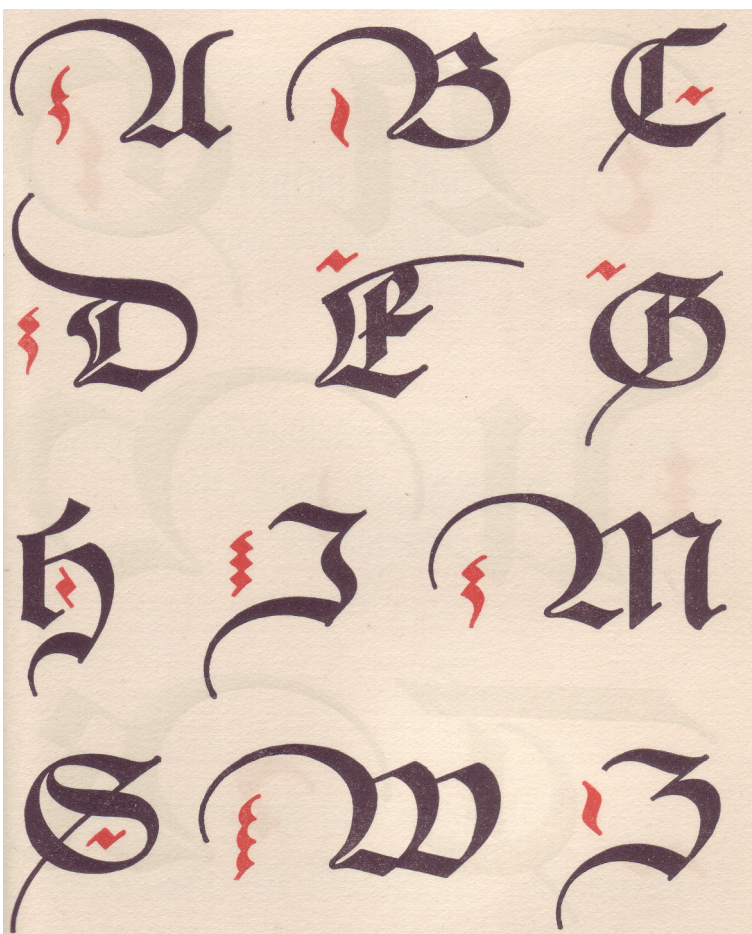 A B C
D E G
H I M
S W Z